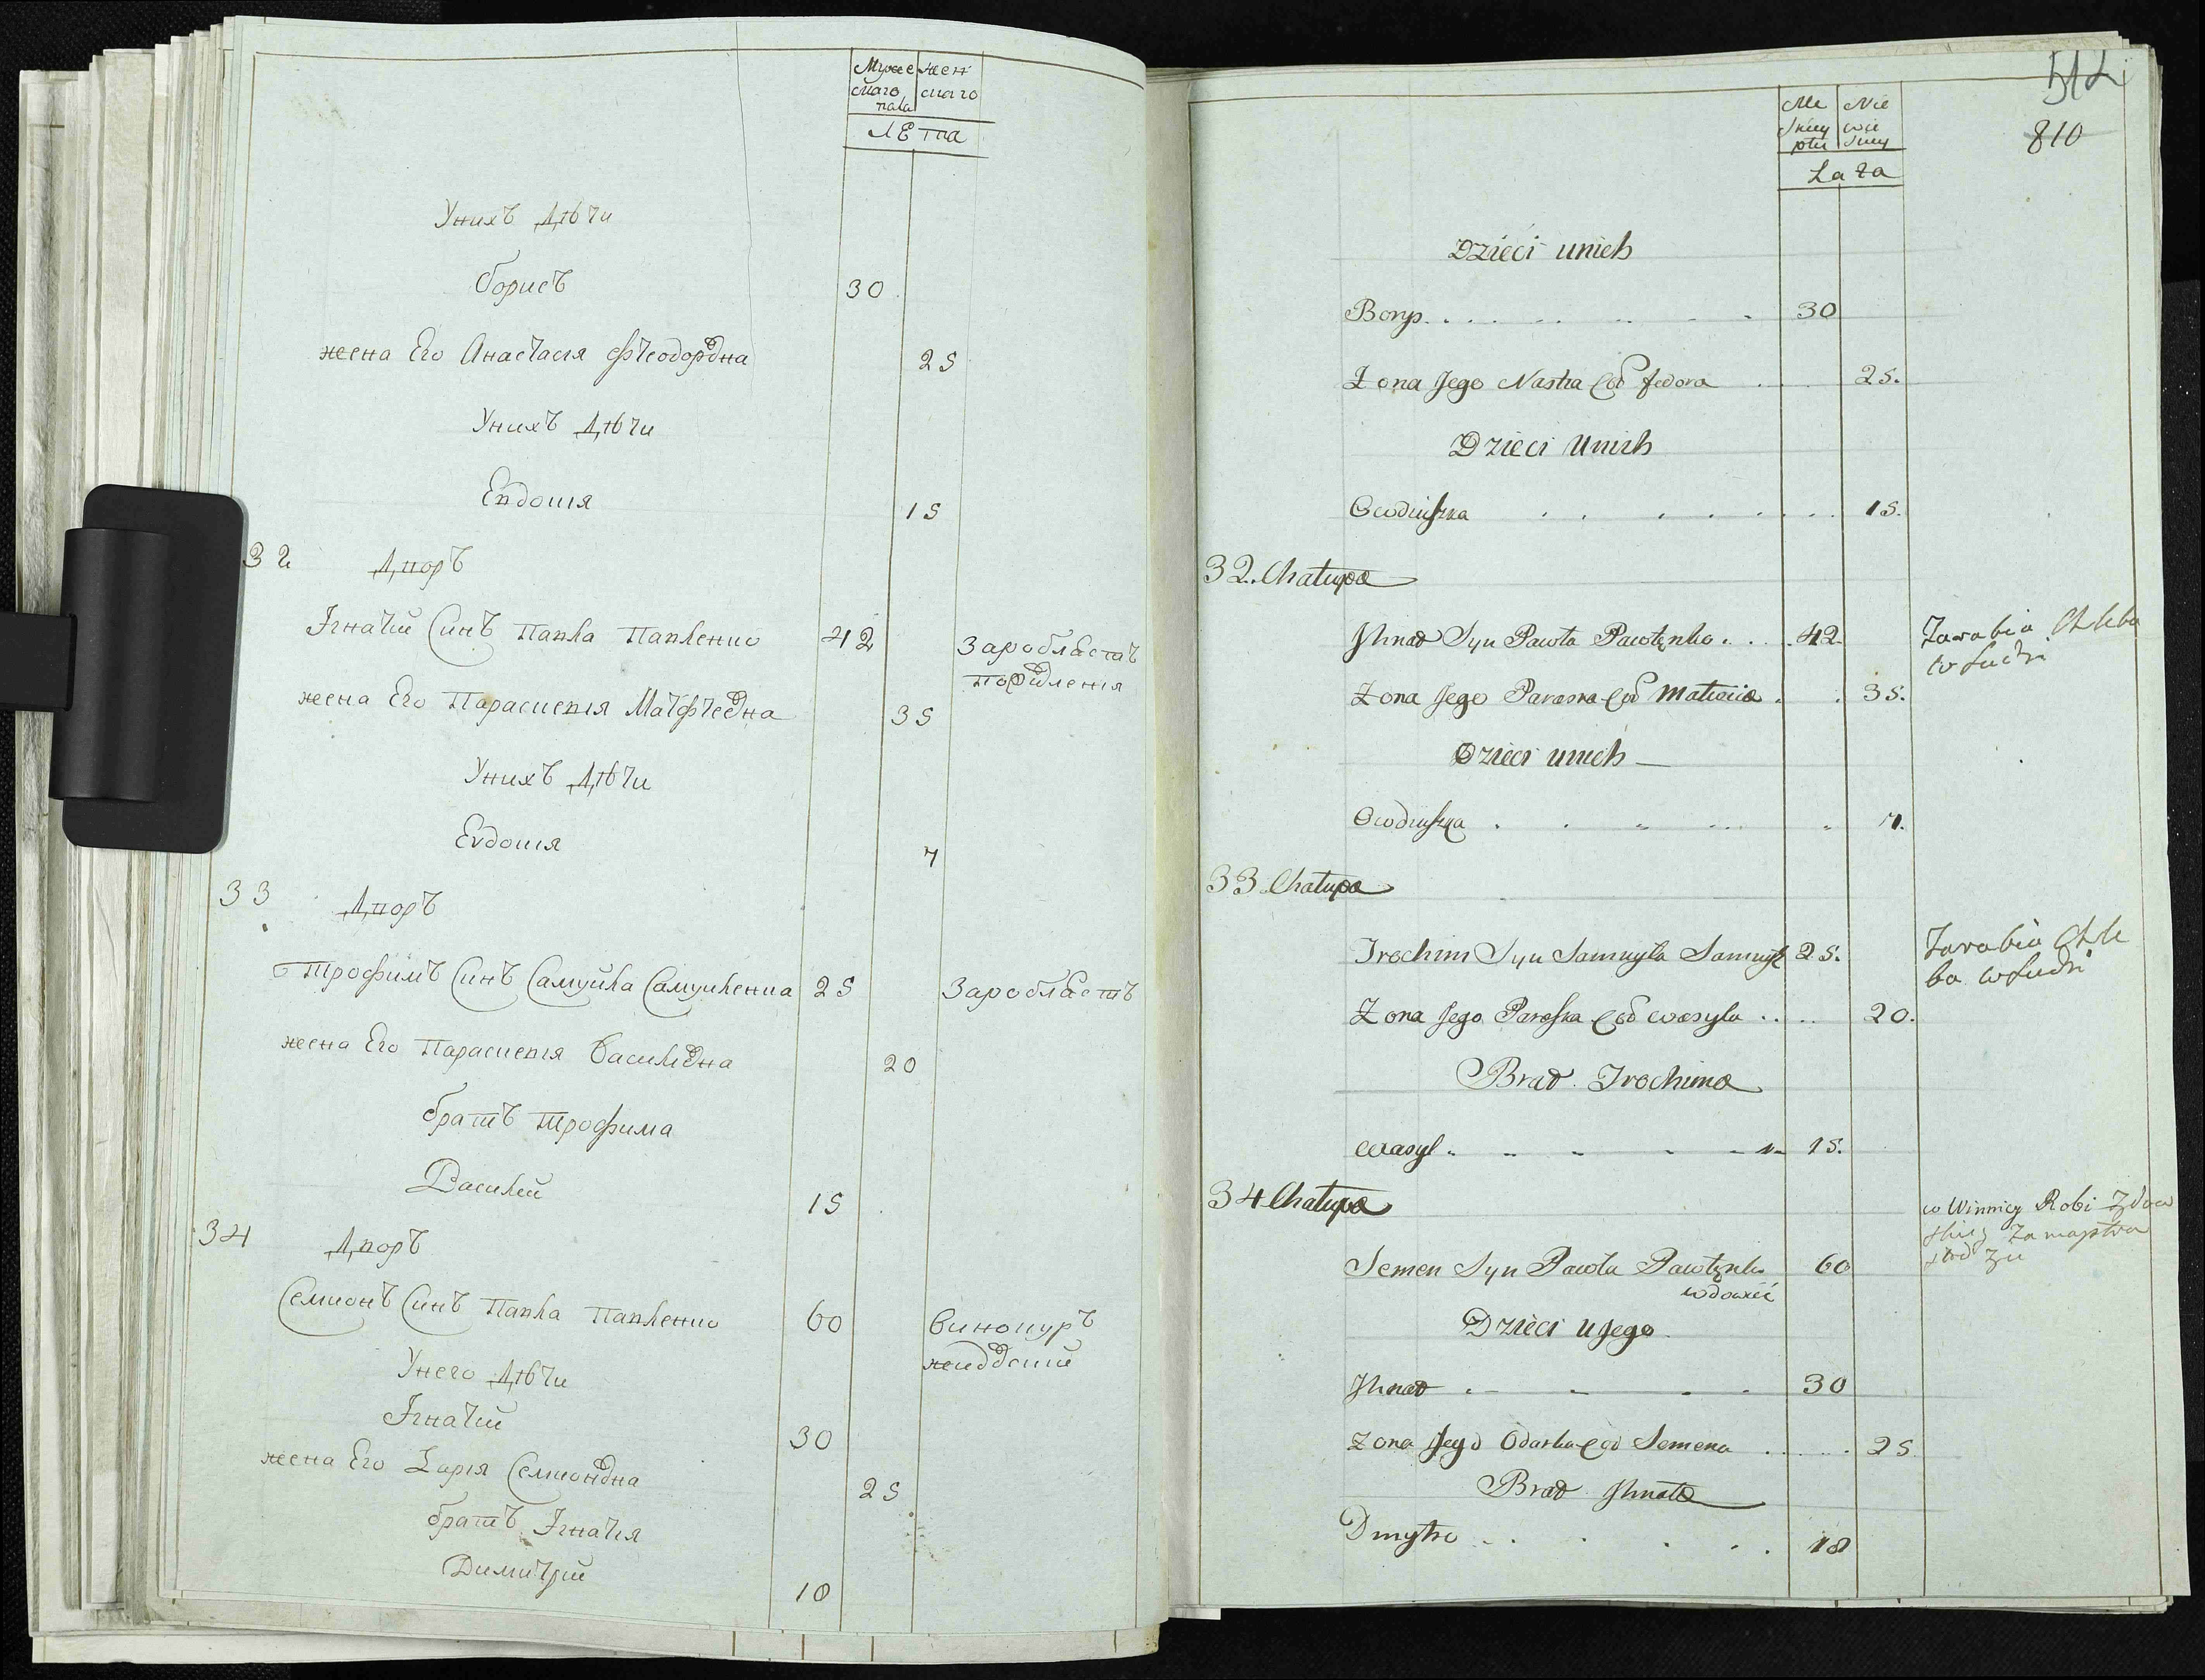 Мужес жен
скаго скаго
пола
лѣта
Унихъ Дѣти
Борисъ 30
жена Его Анастасія Фтеодоровна 25
Унихъ Дѣти
Евдокія 15
32 Дворъ
Ігнатій Синъ Павла Павленко 42 Заробляетъ
жена Его Параскевія Матфтеевна 35
Унихъ Дѣти
Евдокія 7
33 Дворъ
Трофимъ Синъ Самуйла Самуиленка 25 Заробляетъ
жена Его Параскевія Василевна 20
братъ трофима
Василий 15
34 Дворъ
Семионъ Синъ Павла Павленко 60 винокуръ
Унего Дѣти
Ігнатій 30
жена Его Дарія Семионовна 25
братъ Ігнатія
Димитрий 18
512
810
Me Nie
skiey wie
płci skiey
Lata
Dzieci unich
Borys 30
Zona Jego Nastia Cod fedora 25.
Dzieci Unich
Owdiuszka 15.
32. Chałupa
Jhnat Syn Pawła Pawłenko 42 Zarabia Chleba
w Ludzi
Zona Jego Paraska Cod Matwiia 35.
Dzieci unich
Owdiuszka 7.
33. Chałupa
Trochim Syn Samuyła Samuył 25. Zarabia Chle
ba w Ludzi
Zona Jego Paraska Cod wasyla 20.
Brat Trochima
wasyl 15.
34 Chałupa
w Winnicy Robi
Semen Syn Pawła Pawłenko 60
wdowiec
Dzieci u Jego
Jhnat 30
Zona Jego Odarka Cod Semena 25
Brat Jhnata
Dmytro 18